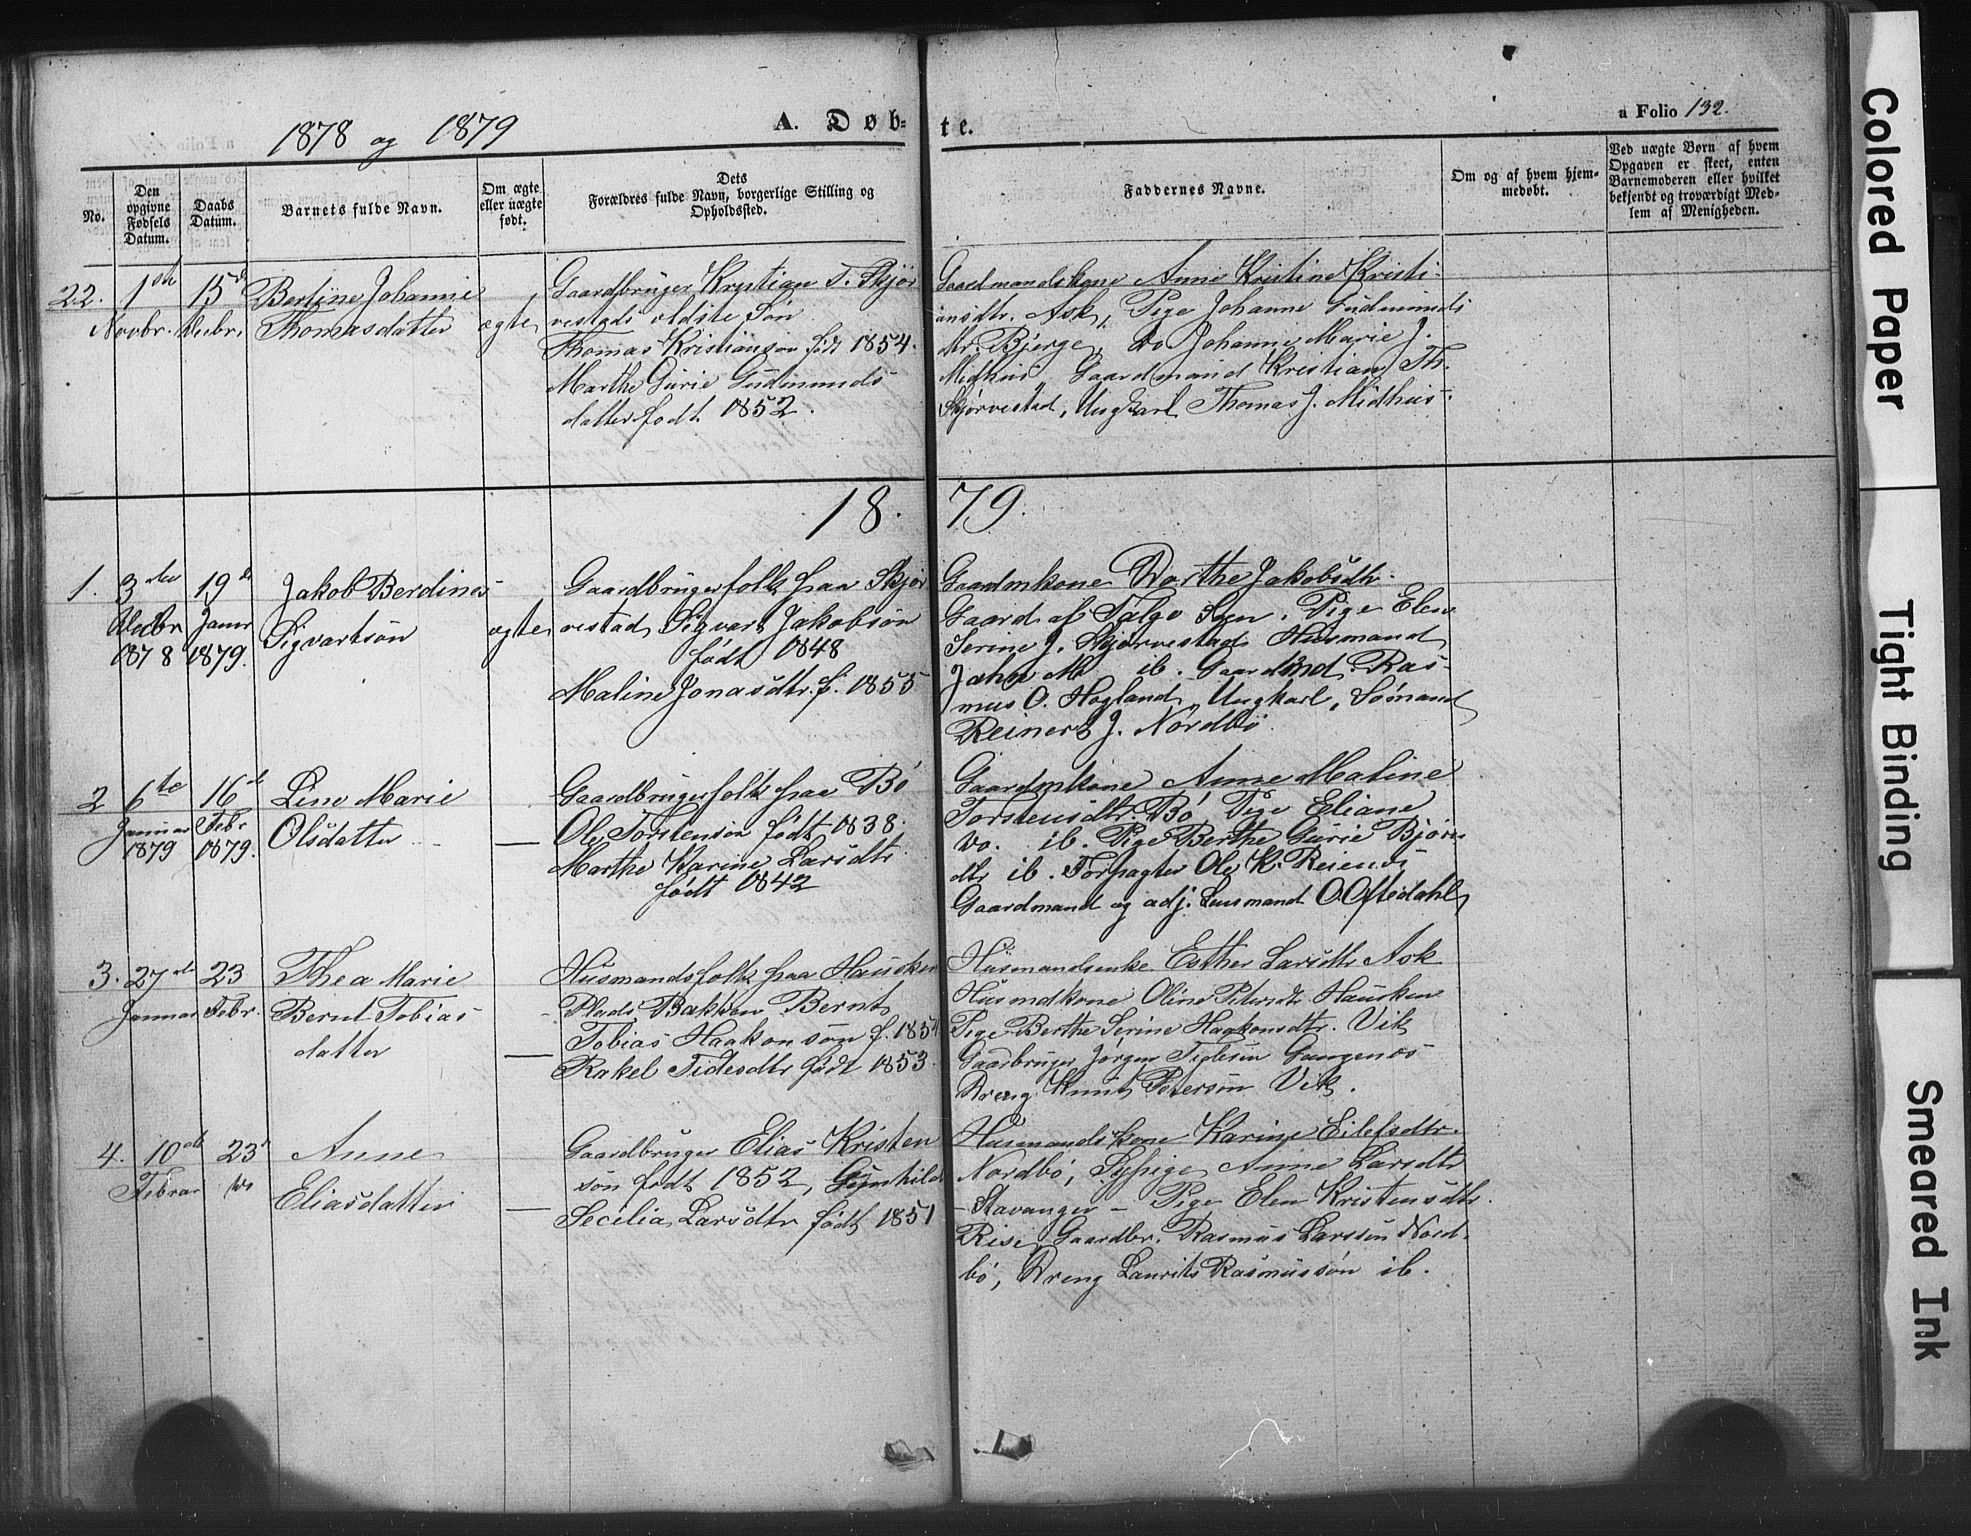 1878 og 1879
A. Døb-
te.
a Folio 132.
No.
Den
opgivne
Fødsels
Datum.
Daabs
Datum.
Barnets fulde Navn.
Om ægte
eller uægte
født.
Dets
Forældres fulde Navn, borgerlige Stilling og
Opholdssted.
Faddernes Navne.
Om og af hvem hjem-
medøbt.
Ved uægte Børn af hvem
Opgaven er skeet, enten
Barnemoderen eller hvilket
bekjendt og troværdigt Med-
lem af Menigheden.
22.
1ste
Novbr.
15de
Decbr.
Bertine Johanne
Thomasdatter
ægte
Gaardbruger Kristian T. Skjør
vestads ældste Søn
Thomas Kristiansøn født 1854.
Marthe Gurie Gudmunds
datter født 1852.
Gaardmandskone Anne Kristine Kristi-
ansdtr. Ask, Pige Johanne Gudmunds
dtr. Bjerge, do Johanne Marie J.
Midhus, Gaardmand Kristian Th.
Skjørvestad, Ungkarl Thomas J. Midhus.
18.79.
1.
3die
Decbr
1878
19de
Januar
1879.
Jakob Berdines
Sigvartsøn
ægte
Gaardbrugerfolk paa Skjør
vestad Sigvart Jakobsøn
født 1848
Maline Jonasdtr. f. 1855
Gaardmkone Dorthe Jakobsdtr.
Gaard af Talgø Sgn. Pige Elen
Serine J. Skjørvestad Husmand
John M ib. Gaardmd. Ras-
mus O. Hogland, Ungkarl, Sømand
Reinert J. Nordbø
2
6te
Januar
1879
16de
Febr
1879.
Line Marie
Olsdatter
—
Gaardbrugerfolk paa Bø
Ole Torstensøn født 1838.
Marthe Karine Larsdtr
født 1842
Gaardmkone Anne Maline
Torstensdtr. Bø Pige Eliane
do. ib. Pige Berthe Gurie Bjørns
dtr ib. Forpagter Ole K. Reienes
Gaardmand og adj. Lensmand O Oftedahl
3.
27de
Januar
23
Febr.
Thea Marie
Bernt Tobias
datter
—
Husmandsfolk paa Hausken
Plads Bakken Bernt
Tobias Haakonsøn f. 185
Rakel Tidesdtr født 1853.
Husmandsenke Esther Larsdtr Ask
Husmdkone Oline Petersdtr Hausken
Pige Berthe Serine Haakonsdtr. Vik
Gaarbruger Jørgen Tidesøn Gangenes
Dreng Knut Petersøn Vik.
4.
10de
Februar
23
do
Anne
Eliasdatter
—
Gaardbruger Elias Kristen
søn født 1852, Gunhild
Secilia Larsdtr født 1851
Husmandskone Karine Eilefsdtr.
Nordbø, Sypige Anne Larsdtr
- Stavanger - Pige Elen Kristensdtr.
Rise, Gaardbr. Rasmus Larssøn Nord-
bø, Dreng Laurits Rasmussøn ib.
Colored Paper
Tight Binding
Smeared Ink